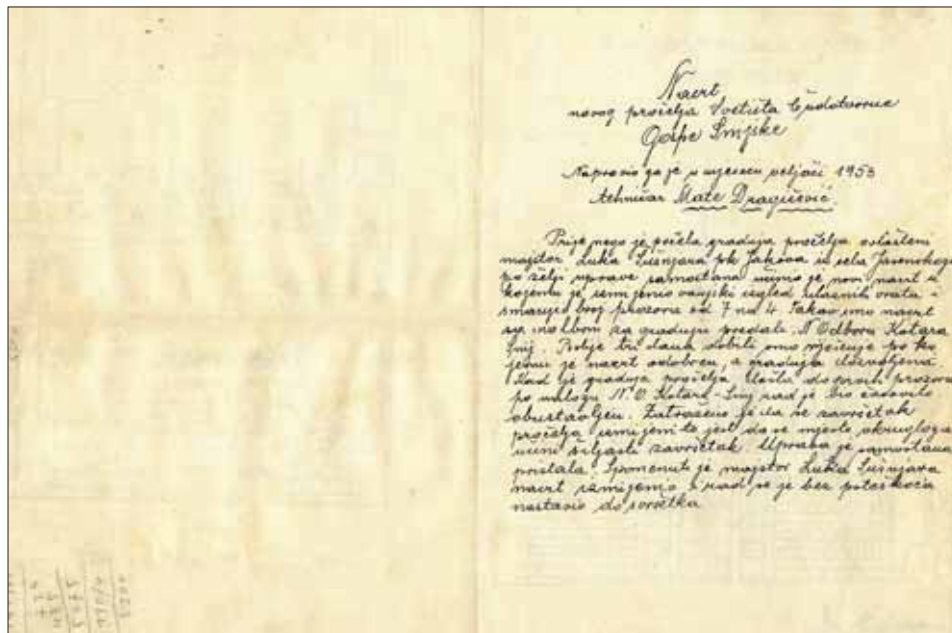 Nacrt
novog pročelja Svetišta Čudotvorne
Gospe Sinjske
Napravio ga je u mjesecu veljači 1953
tehničar Mate Dragičević
Prije nego je počela gradnja pročelja ovlašteni
majstor Luka Šušnjara pk Jakova iz sela Jasenskoga
po želji uprave samostana učinio je novi nacrt u
kojemu je izmijenio vanjski izgled ulaznih vrata i
smanjio broj prozora od 7 na 4 Takav smo nacrt
sa molbom za gradnju predali N Odboru Kotara
Sinj. Poslje tri dana dobili smo rješenje po ko
jemu je nacrt odobren, a gradnja dozvoljena
Kad je gradnja pročelja došla do prvih prozora
po nalogu N. O. Kotara-Sinj rad je bio časovito
obustavljen. Zatraženo je da se završetak
pročelja izmijeni to jest da se mjesto okrugloga
učini šiljasti završetak. Uprava je samostana
pristala. Spomenuti je majstor Luka Šušnjara
nacrt izmijenio i rad se je bez poteškoća
nastavio do svršetka